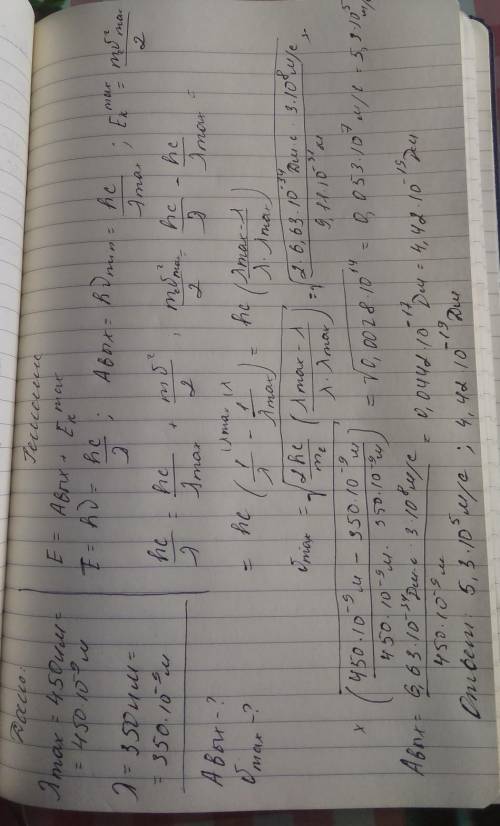 Дано:
λmax = 450нм =
= 450·10⁻⁹ м
λ = 350нм =
= 350·10⁻⁹ м
Aвых - ?
υmax - ?
Решение
E = Aвых + Eк max
E = hν = hc/λ ; Aвых = hνmin = hc/λmax ; Eк max = mυ²max/2
hc/λ = hc/λmax + mυ²/2 ; mυ²max/2 = hc/λ - hc/λmax =
= hc (1/λ - 1/λmax) = hc (λmax - λ / λ·λmax)
υmax = √(2hc/m (λmax - λ / λ·λmax)) = √(2·6,63·10⁻³⁴Дж·с·3·10⁸м/с / 9,11·10⁻³¹ кг ×
× (450·10⁻⁹м - 350·10⁻⁹м / 450·10⁻⁹м · 350·10⁻⁹м)) = √(0,0028·10¹⁴) = 0,053·10⁷ м/с = 5,3·10⁵ м/с
Aвых = 6,63·10⁻³⁴Дж·с · 3·10⁸м/с / 450·10⁻⁹м = 0,0442·10⁻¹⁷ Дж = 4,42·10⁻¹⁹ Дж
Ответ: 5,3·10⁵ м/с ; 4,42·10⁻¹⁹ Дж